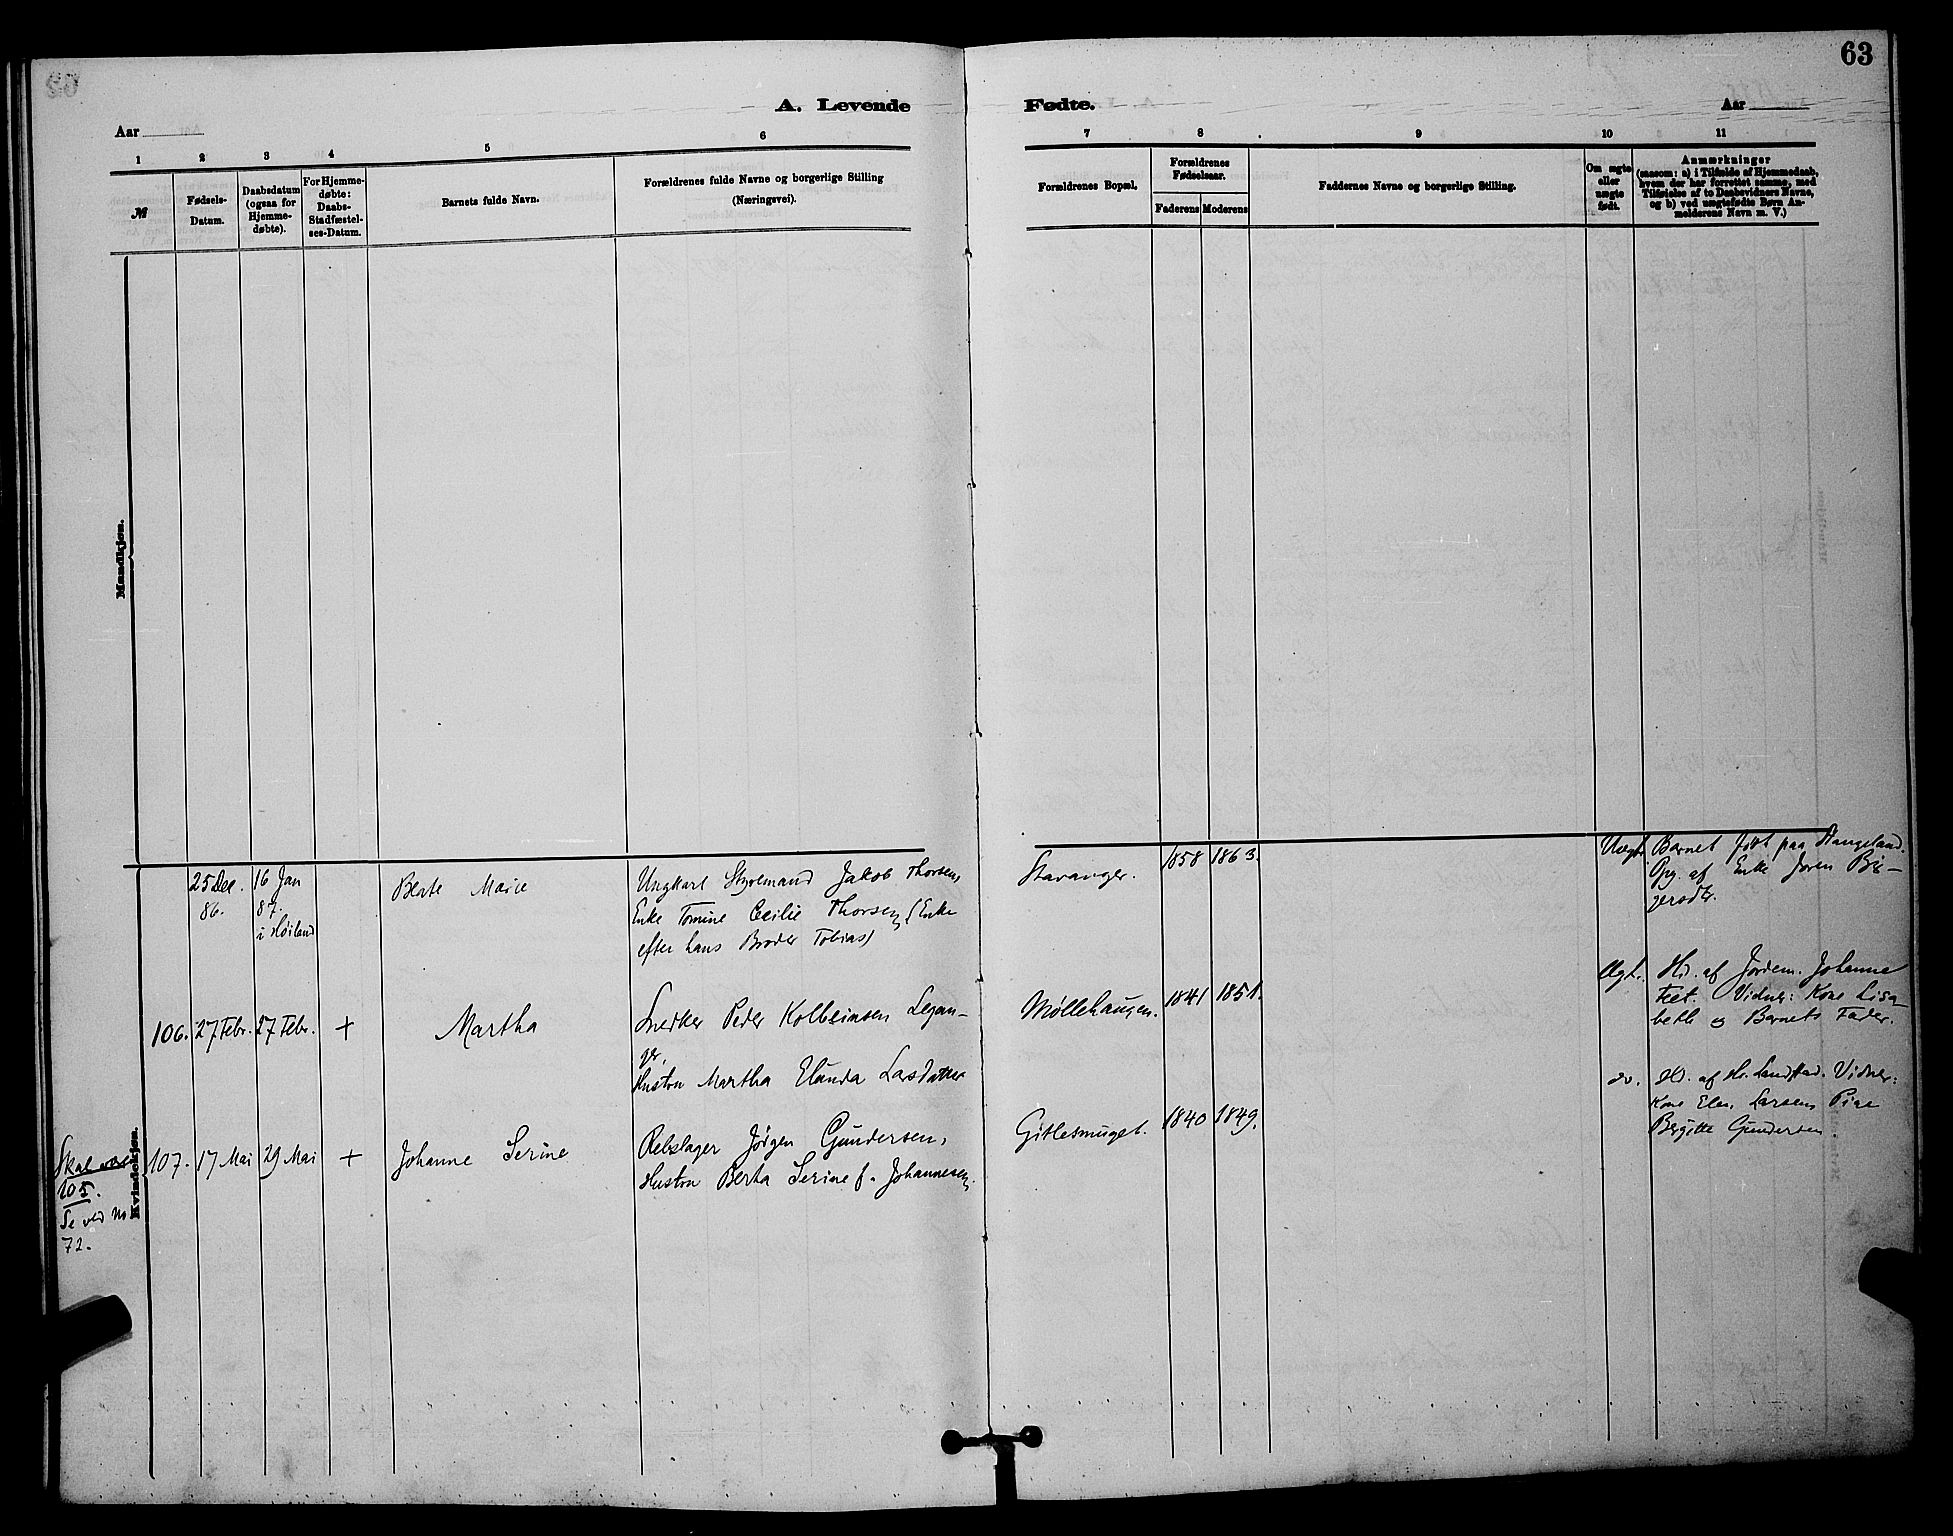 63
A. Levende Fødte.
Aar
Aar
1 2 3 4 5 6 7 8 9 10 11
№
Fødsels-
Datum.
Daabsdatum
(ogsaa for
Hjemme-
døbte).
For Hjemme-
døbte:
Daabs-
Stadfæstel-
ses-Datum.
Barnets fulde Navn.
Forældrenes fulde Navne og borgerlige Stilling
(Næringsvei).
Forældrenes Bopæl.
Forældrenes
Fødselsaar.
Faderens Moderens
Faddernes Navne og borgerlige Stilling.
Om ægte
eller
uægte
født.
Anmærkninger
(saasom: a) i Tilfælde af Hjemmedaab,
hvem der har forrettet samme, med
Tilføielse af to Daabsvidners Navne,
og b) ved uægtefødte Børn An-
melderens Navn m. V.)
Mandkjøn.
Kvindekjøn.
25 Dec.
86.
16 Jan
87.
i Høiland
Berte Marie
Ungkarl Styrmand Jakob Thorsen,
Enke Tomine Cecilie Thorsen, (Enke
efter hans Broder Tobias)
Stavanger.
1858 1863.
Uægt.
Barnet født paa Stangeland.
Opg. af Enke Joren Bir-
gersdtr.
106. 27 Febr. 27 Febr. +
Martha
Snedker Peder Kolbeinsen Legan-
ger,
Hustru Martha Elunda Lasdatter
Møllehaugen.
1841 1851.
Ægt.
Hd. af Jordem. Johanne
Teet. Vidner: Kone Lisa-
beth og Barnets Fader.
Skal være
105.
Se ved No
72.
107. 17 Mai 29 Mai +
Johanne Serine
Rebslager Jørgen Gundersen,
Hustru Berta Serine f. Johannesen,
Gitlesmuget.
1840 1849.
do.
Hd. af Hr. Landstad. Vidner:
Kone Elen Larsen, Pige
Bergitte Gundersen.